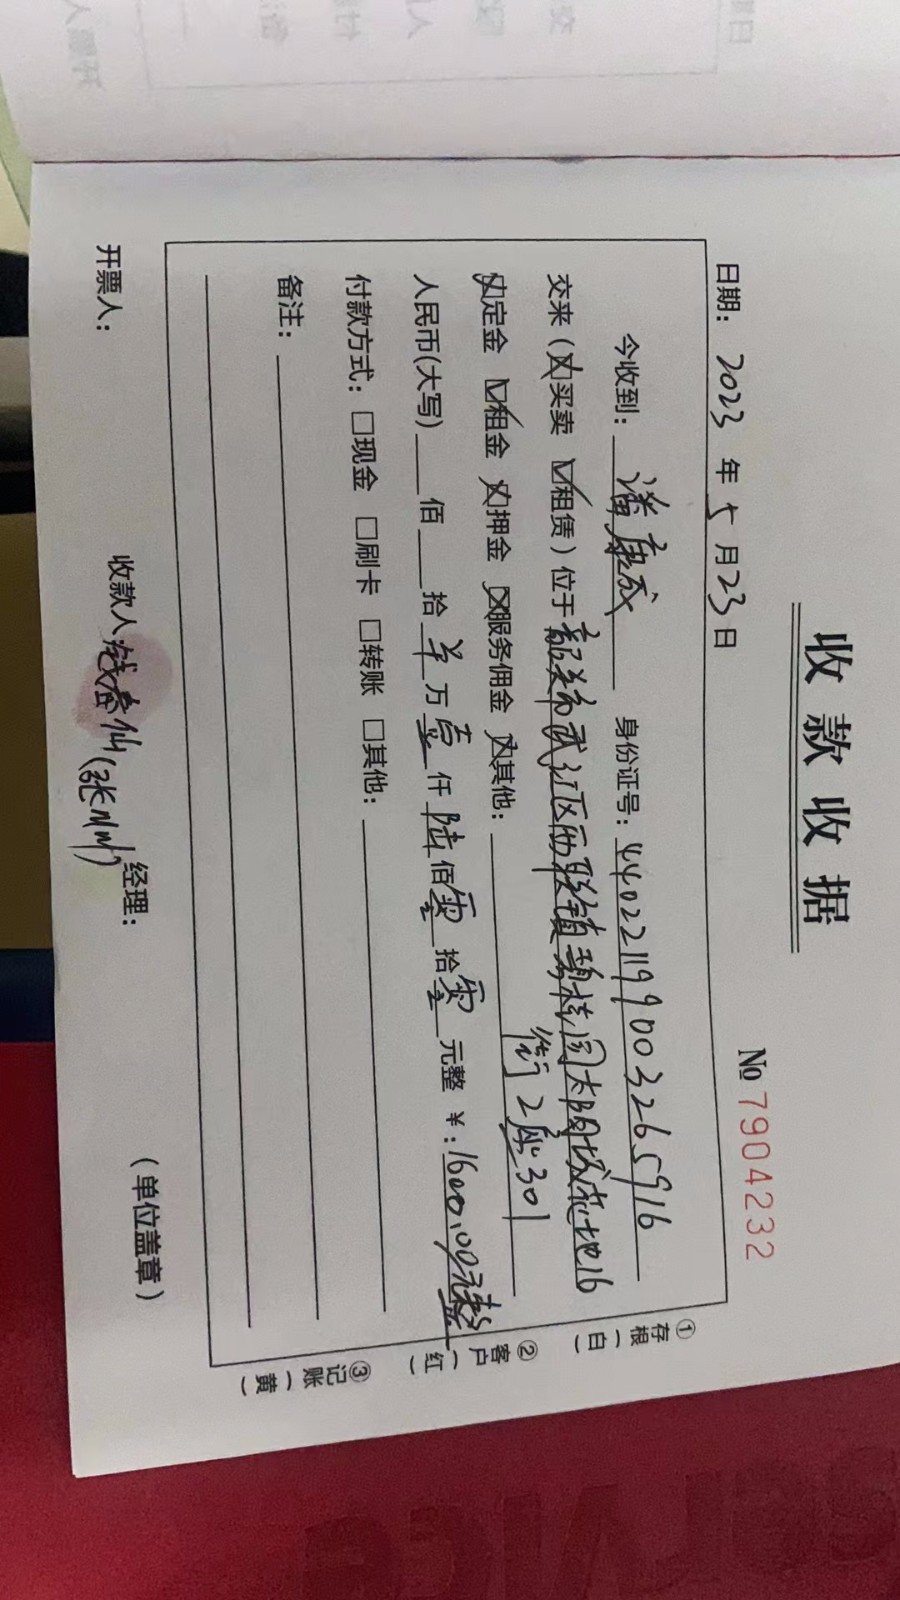 收款收据
No 7904232
日期: 2023 年 5 月 23 日
今收到: 潘康成 身份证号: 440221199003265916
交来 (☒买卖 ☑租赁) 位于韶关市武江区西联镇碧桂园太阳城花地16
街2座301
☒定金 ☑租金 ☒押金 ☒服务佣金 ☒其他:
人民币(大写) 佰 拾 羊 万 壹 仟 陆 佰 零 拾 零 元整 ¥: 1600.00元整
付款方式: □现金 □刷卡 □转账 □其他:
备注:
开票人: 收款人 经理: (单位盖章)
①存根(白)
②客户(红)
③记账(黄)
service